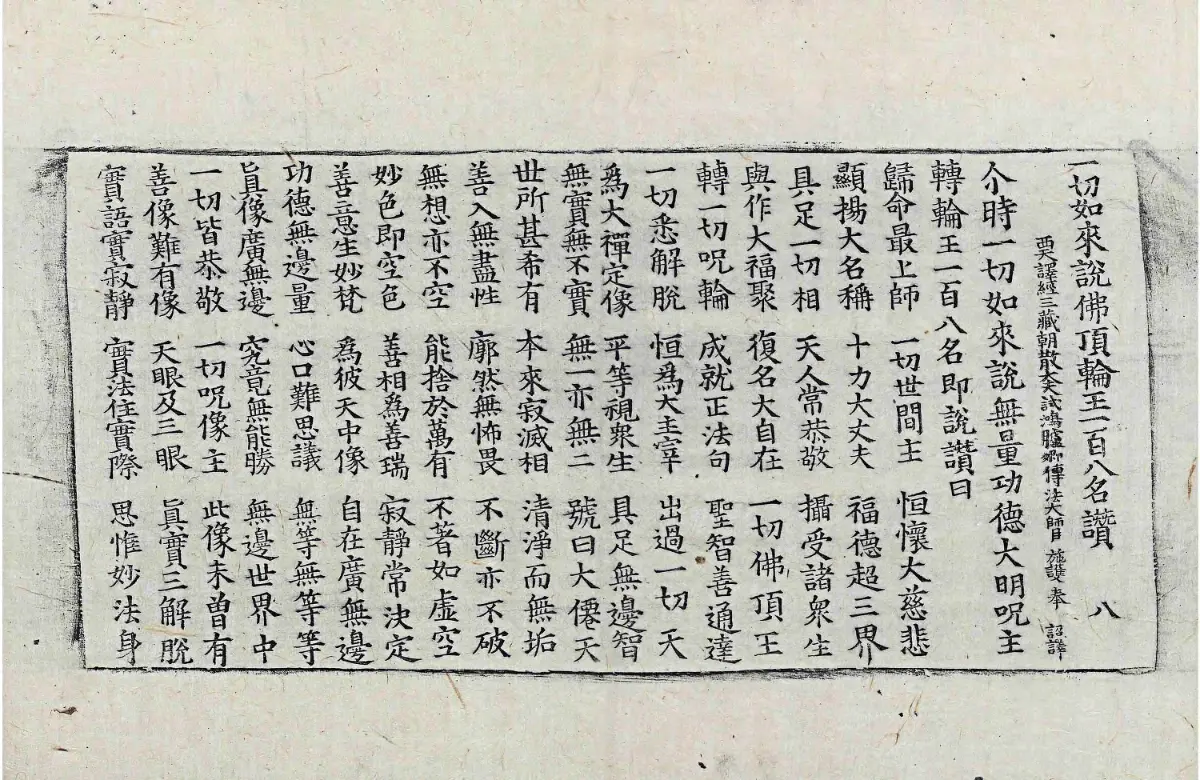 一切如來說佛頂輪王一百八名讚 八
西天譯經三藏朝散大夫試鴻臚卿傳法大師臣施護奉 詔譯
尒時一切如來說無量功德大明呪主
轉輪王一百八名即說讚曰
歸命最上師 一切世間主 恒懷大慈悲
顯揚大名稱 十力大丈夫 福德超三界
具足一切相 天人常恭敬 攝受諸衆生
與作大福聚 復名大自在 一切佛頂王
轉一切呪輪 成就正法句 聖智善通達
一切悉解脫 恒爲大主宰 出過一切天
爲大禪定像 平等視衆生 具足無邊智
無實無不實 無一亦無二 號曰大僊天
世所甚希有 本來寂滅相 清淨而無垢
善入無盡性 廓然無怖畏 不斷亦不破
無想亦不空 能捨於萬有 不著如虛空
妙色即空色 善相爲善瑞 寂靜常決定
善意生妙梵 爲彼天中像 自在廣無邊
功德無邊量 心口難思議 無等無等等
眞像廣無邊 究竟無能勝 無邊世界中
一切皆恭敬 一切呪像主 此像未曾有
善像難有像 天眼及三眼 眞實三解脫
實語實寂靜 實法住實際 思惟妙法身